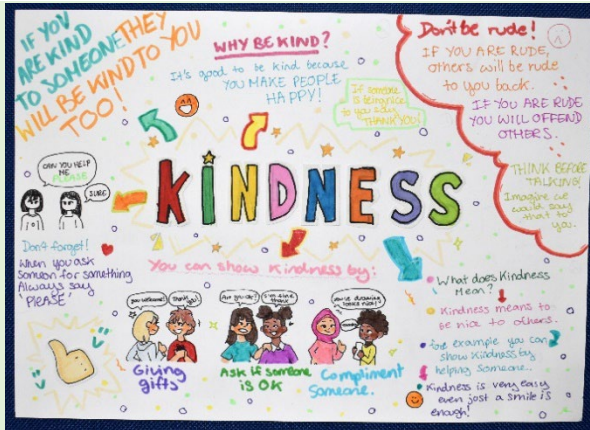 IF YOU
ARE KIND
TO SOMEONE THEY
WILL BE KIND TO YOU
TOO!
WHY BE KIND?
It's good to be kind because
YOU MAKE PEOPLE
HAPPY!
If someone
is being nice
to you say
THANK YOU!
Don't be rude!
IF YOU ARE RUDE,
others will be rude
to you back.
IF YOU ARE RUDE
YOU WILL OFFEND
OTHERS.
THINK BEFORE
TALKING!
Imagine we
would say
that to
you.
CAN YOU HELP
ME
PLEASE
SURE
KINDNESS
Don't forget!
When you ask
someone for something
Always say
'PLEASE'
You can show kindness by:
you welcome!
Thank you!
Are you ok?
I'm fine
thank
Giving
gifts
Ask if someone
is OK
Compliment
Someone.
What does Kindness
Mean?
Kindness means to
be nice to others.
For example you can
show kindness by
helping someone.
Kindness is very easy
even just a smile is
enough!